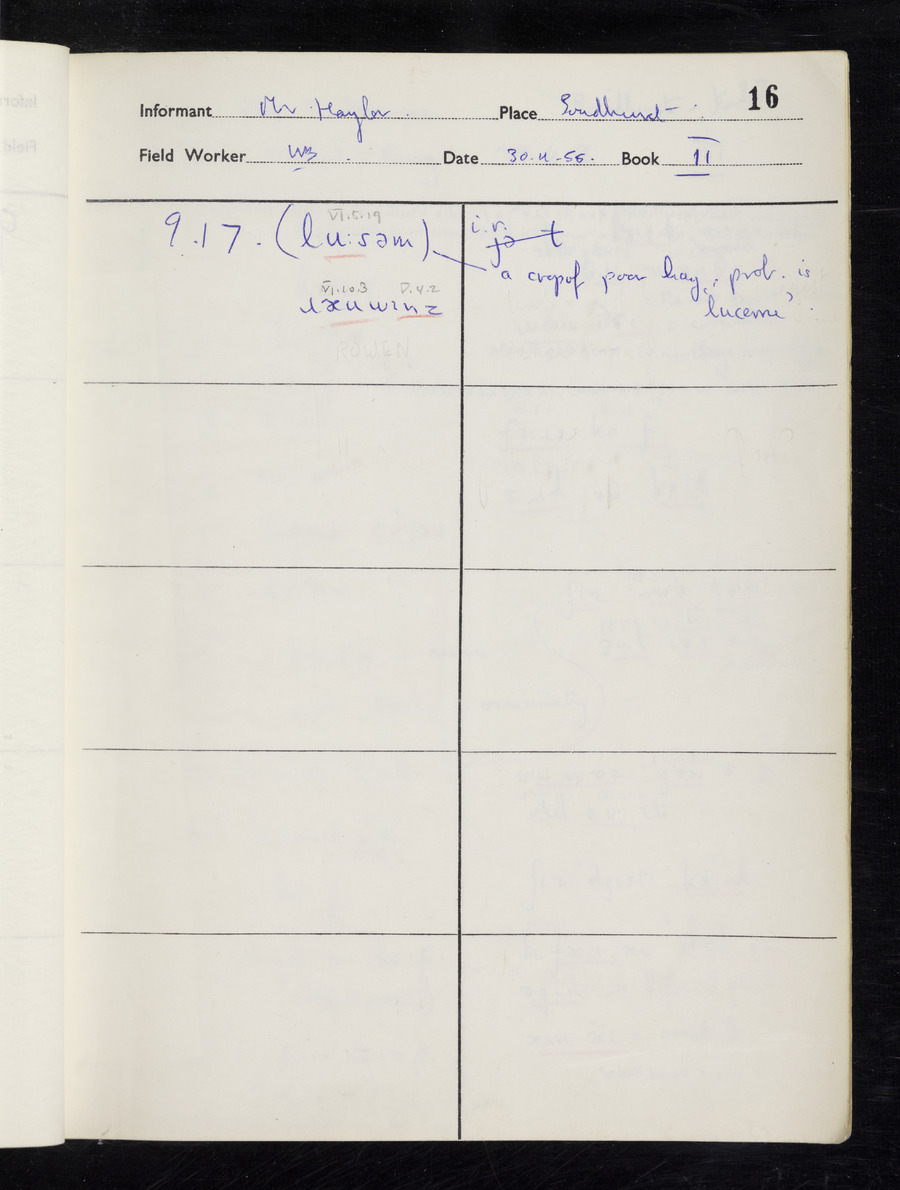 16
Informant Mr Haylor. Place Sandhurst
Field Worker WB. Date 30.11.55. Book II
VI.5.19
9.17. (lu:səm) i.r.
a crop of poor hay, prob. is
VI.10.3 V.4.2
'lucerne'